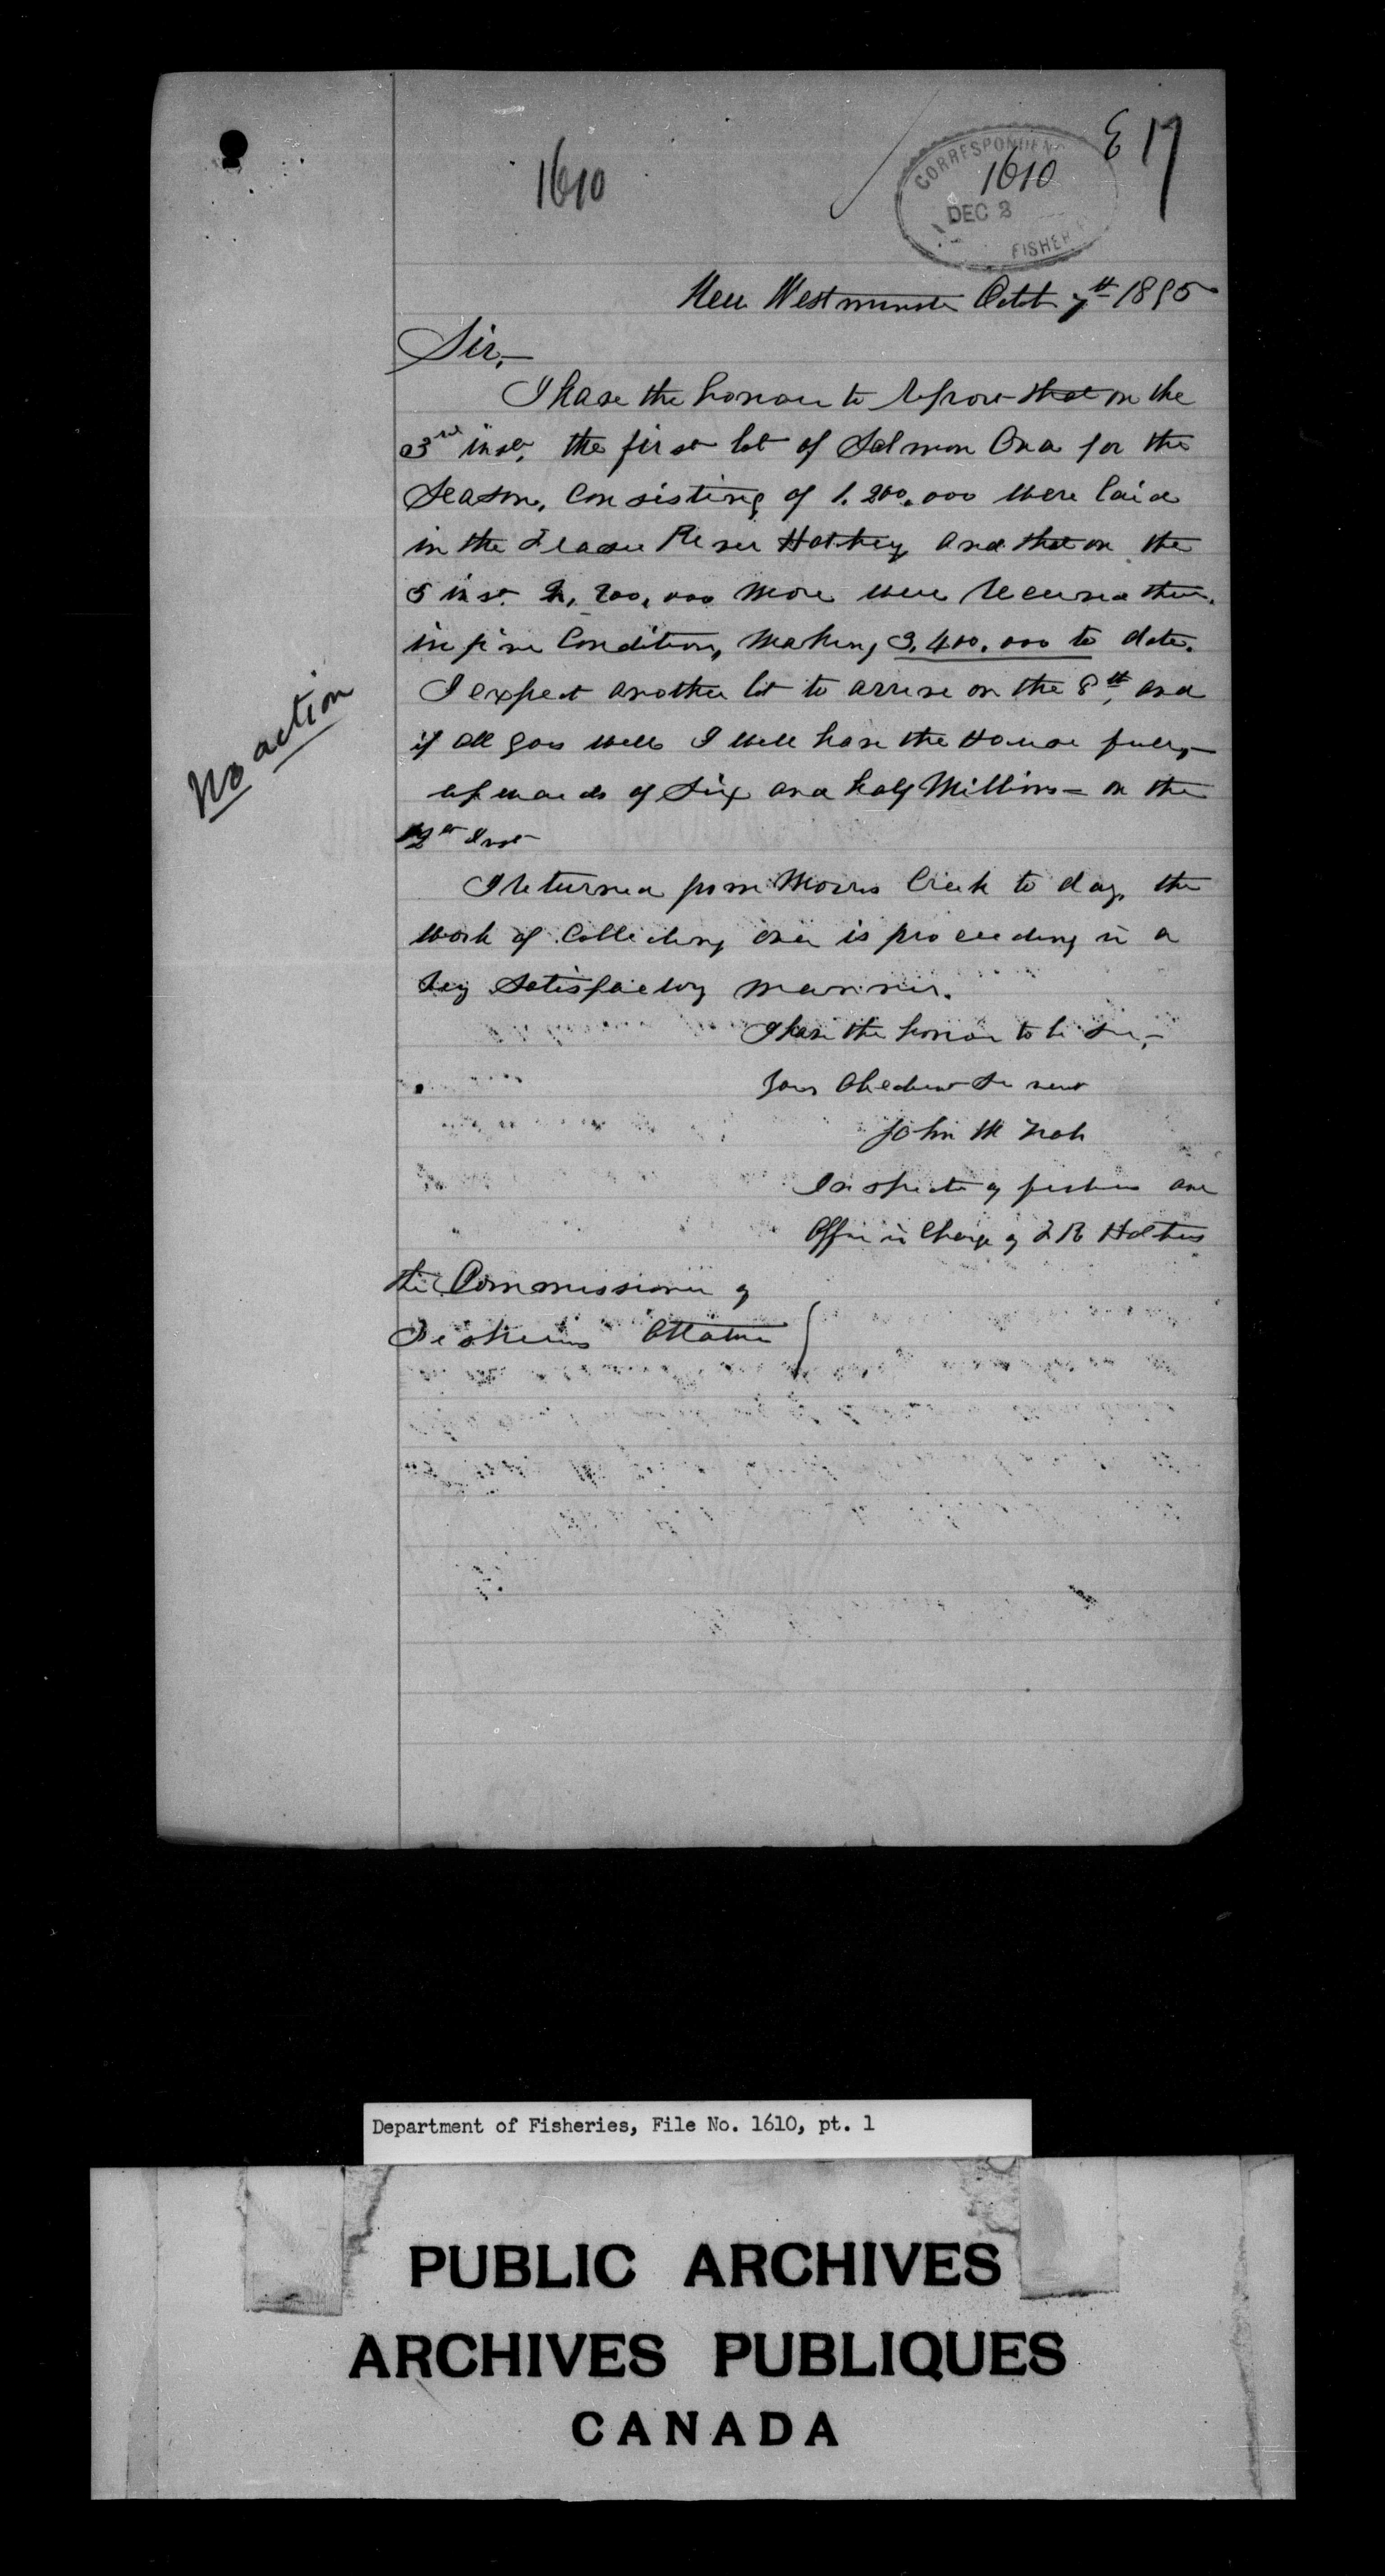 1610
E 17
CORRESPONDEN
1610
DEC 3
FISHER
New Westminster Octob 7th 1895
Sir,
I have the honour to report that on the
3rd inst, the first lot of Salmon Ova for the
Season, Consisting of 1,200,000 were laid
in the Fraser River Hatchery, and that on the
5 inst. 2,200,000 more were received there,
in fine Condition, Making 3,400,000 to date.
I expect another lot to arrive on the 8th, and
if all goes well I will have the House full,
upwards of Six and half Millions - on the
12th Inst
I returned from Morris Creek to day, the
work of Collecting ova is proceeding in a
very Satisfactory manner.
I have the honour to be Sir,
Your Obedient Servant
John McNab
Inspector of fisheries and
Officer in Charge of F R Hatchery
The Commissioner of
Fisheries Ottawa
No action
Department of Fisheries, File No. 1610, pt. 1
PUBLIC ARCHIVES
ARCHIVES PUBLIQUES
CANADA